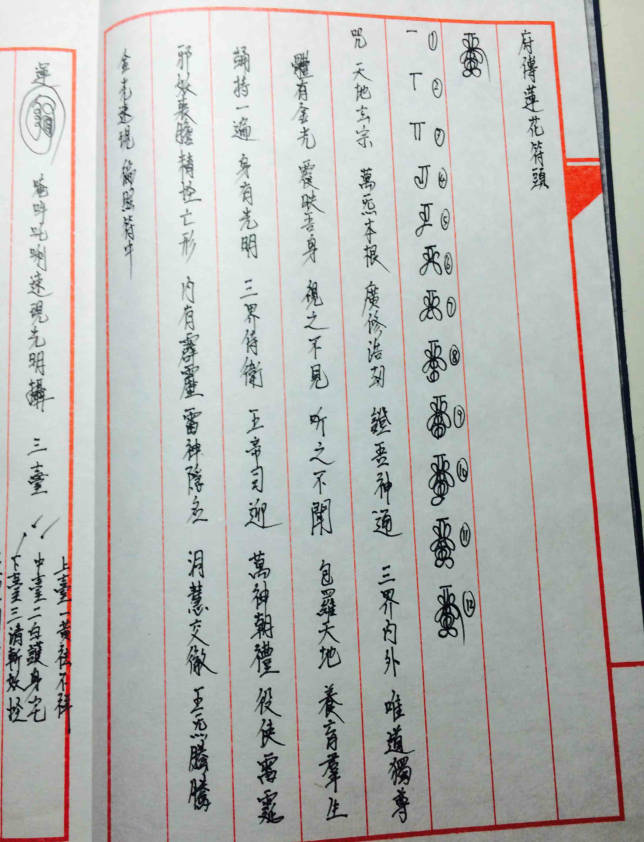 府傳蓮花符頭
① ② ③ ④ ⑤ ⑥ ⑦ ⑧ ⑨ ⑩ ⑪ ⑫
咒 天地玄宗 萬炁本根 廣修浩劫 證吾神通 三界內外 唯道獨尊
體有金光 覆映吾身 視之不見 听之不聞 包羅天地 養育羣生
誦持一遍 身有光明 三界侍衛 五帝司迎 萬神朝禮 役使雷霆
邪妖喪膽 精怪亡形 內有霹靂 雷神隱名 洞慧交徹 五炁騰騰
金光速現 符中
唵吽吒唎速現光明攝 三臺
上臺一黃祛不祥
中臺二白護身宅
下臺三清斬妖怪